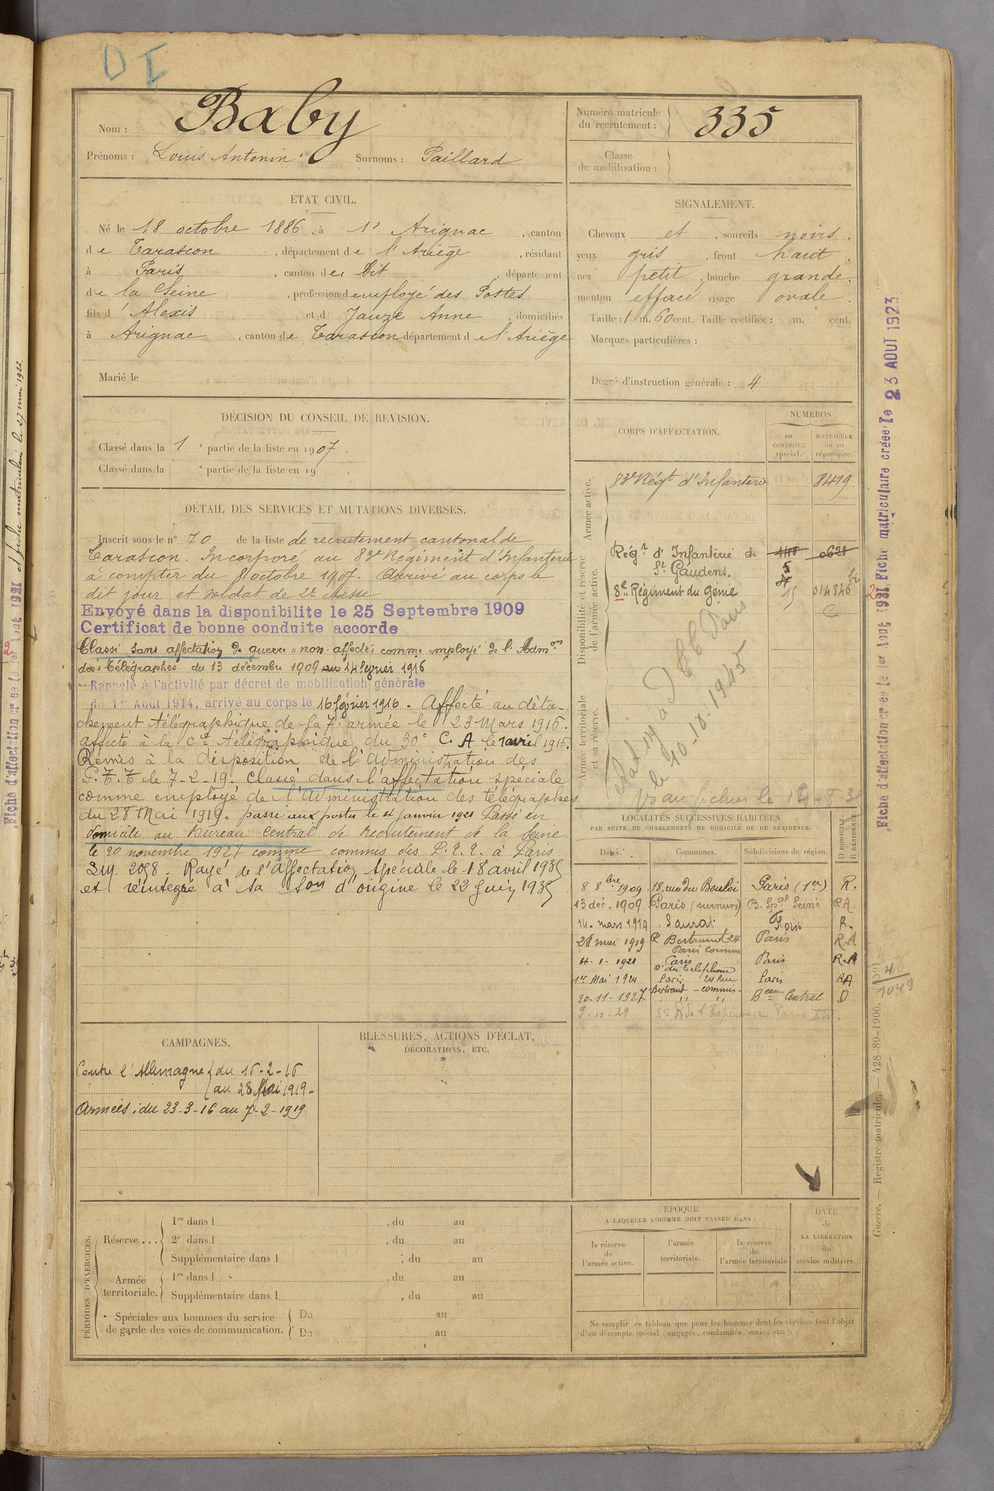 DI
Nom : Baby
Prénoms : Louis Antonin Surnoms : Paillard
Numéro matricule du recrutement : 335
Classe de mobilisation :
ÉTAT CIVIL.
Né le 18 octobre 1886, à Arignac, canton
de Tarascon, département de l'Ariège, résidant
à Paris, canton de dit, département
de la Seine, profession d'employé des Postes
fils d'Alexis et d Jauze Anne, domiciliés
à Arignac, canton de Tarascon, département d l'Ariège
Marié le
SIGNALEMENT.
Cheveux et, sourcils noirs.
yeux gris, front haut,
nez petit, bouche grande,
menton effacé visage ovale.
Taille : 1 m. 60 cent. Taille rectifiée : m. cent.
Marques particulières :
Degré d'instruction générale : 4
DÉCISION DU CONSEIL DE REVISION.
Classé dans la 1e partie de la liste en 1907.
Classé dans la e partie de la liste en 19
CORPS D'AFFECTATION.
NUMÉROS
au contrôle spécial.
MATRICULE ou au répertoire.
Armée active.
83e Régt d'Infanterie 8419
Disponibilité et réserve de l'armée active.
Régt d'Infanterie de St Gaudens.
8e Régiment du génie
Armée territoriale et sa réserve.
le 10-10-1945
DÉTAIL DES SERVICES ET MUTATIONS DIVERSES.
Inscrit sous le n° 70 de la liste de recrutement cantonal de
Tarascon Incorporé au 83e Régiment d'Infanterie
à compter du 8 octobre 1907. Arrivé au corps le
dit jour et soldat de 2e classe
Envoyé dans la disponibilite le 25 Septembre 1909
Certificat de bonne conduite accorde
Classé sans affectation de guerre "non affecté" comme employé de l'Admon
des Télégraphes du 13 décembre 1909 au 14 février 1916
Rappelé à l'activité par décret de mobilisation générale
du 1er Août 1914, arrivé au corps le 16 février 1916. Affecté au déta-
chement télégraphique de la 7e armée le 23 Mars 1916.
affecté à la Cie télégraphique du 30e C.A le 1 avril 1916.
Remis à la disposition de l'Administration des
P.T.T le 7-2-19. Classé dans l'affectation spéciale
comme employé de l'Administration des télégraphes
du 28 Mai 1919. passe aux postes le 4 janvier 1921 Passé en
domicile au Bureau Central de Recrutement de la Seine
le 20 novembre 1927 comme commis des P.T.T. à Paris
Rayé de l'Affectation Spéciale le 18 avril 1935
et réintégré à sa Son d'origine le 22 Juin 1935
LOCALITÉS SUCCESSIVES HABITÉES
PAR SUITE DE CHANGEMENTS DE DOMICILE OU DE RÉSIDENCE.
Dates. Communes. Subdivisions de région. D DOMICILE. R RÉSIDENCE.
8 8bre 1909 18, rue du Bouloi Paris (1er) R.
13 déc. 1909 Paris RA
14 mars 1919 Saurat Foix R.
28 mai 1919 R. Bertrand 24 Paris comme Paris R-A
4-1-1921 Paris Paris R-A
1er Mai 1924 Paris, 24 Rue Paris RA
20-11-1927 Bertrand - commis - Beau Central D
CAMPAGNES.
Contre l'Allemagne du 16-2-16
au 28 Mai 1919-
Armées : du 23-3-16 au 7-2-1919
BLESSURES, ACTIONS D'ÉCLAT,
DÉCORATIONS, ETC.
PÉRIODES D'EXERCICES.
Réserve....
1re dans l , du au
2e dans l , du au
Supplémentaire dans l , du au
Armée territoriale.
1re dans l , du au
Supplémentaire dans l , du au
Spéciales aux hommes du service de garde des voies de communication.
Du au
Du au
ÉPOQUE
A LAQUELLE L'HOMME DOIT PASSER DANS :
la réserve de l'armée active.
l'armée territoriale.
la réserve de l'armée territoriale
DATE de LA LIBÉRATION du service militaire.
Ne remplir ce tableau que pour les hommes dont les services font l'objet
d'un décompte spécial (engagés, condamnés, omis, etc.).
Fiche matriculaire créée le 23 AOUT 1923
Fiche d'affectation créée le 1er Août 1921
Guerre. — Registre matricule. — 428-89-1906.
4
1049